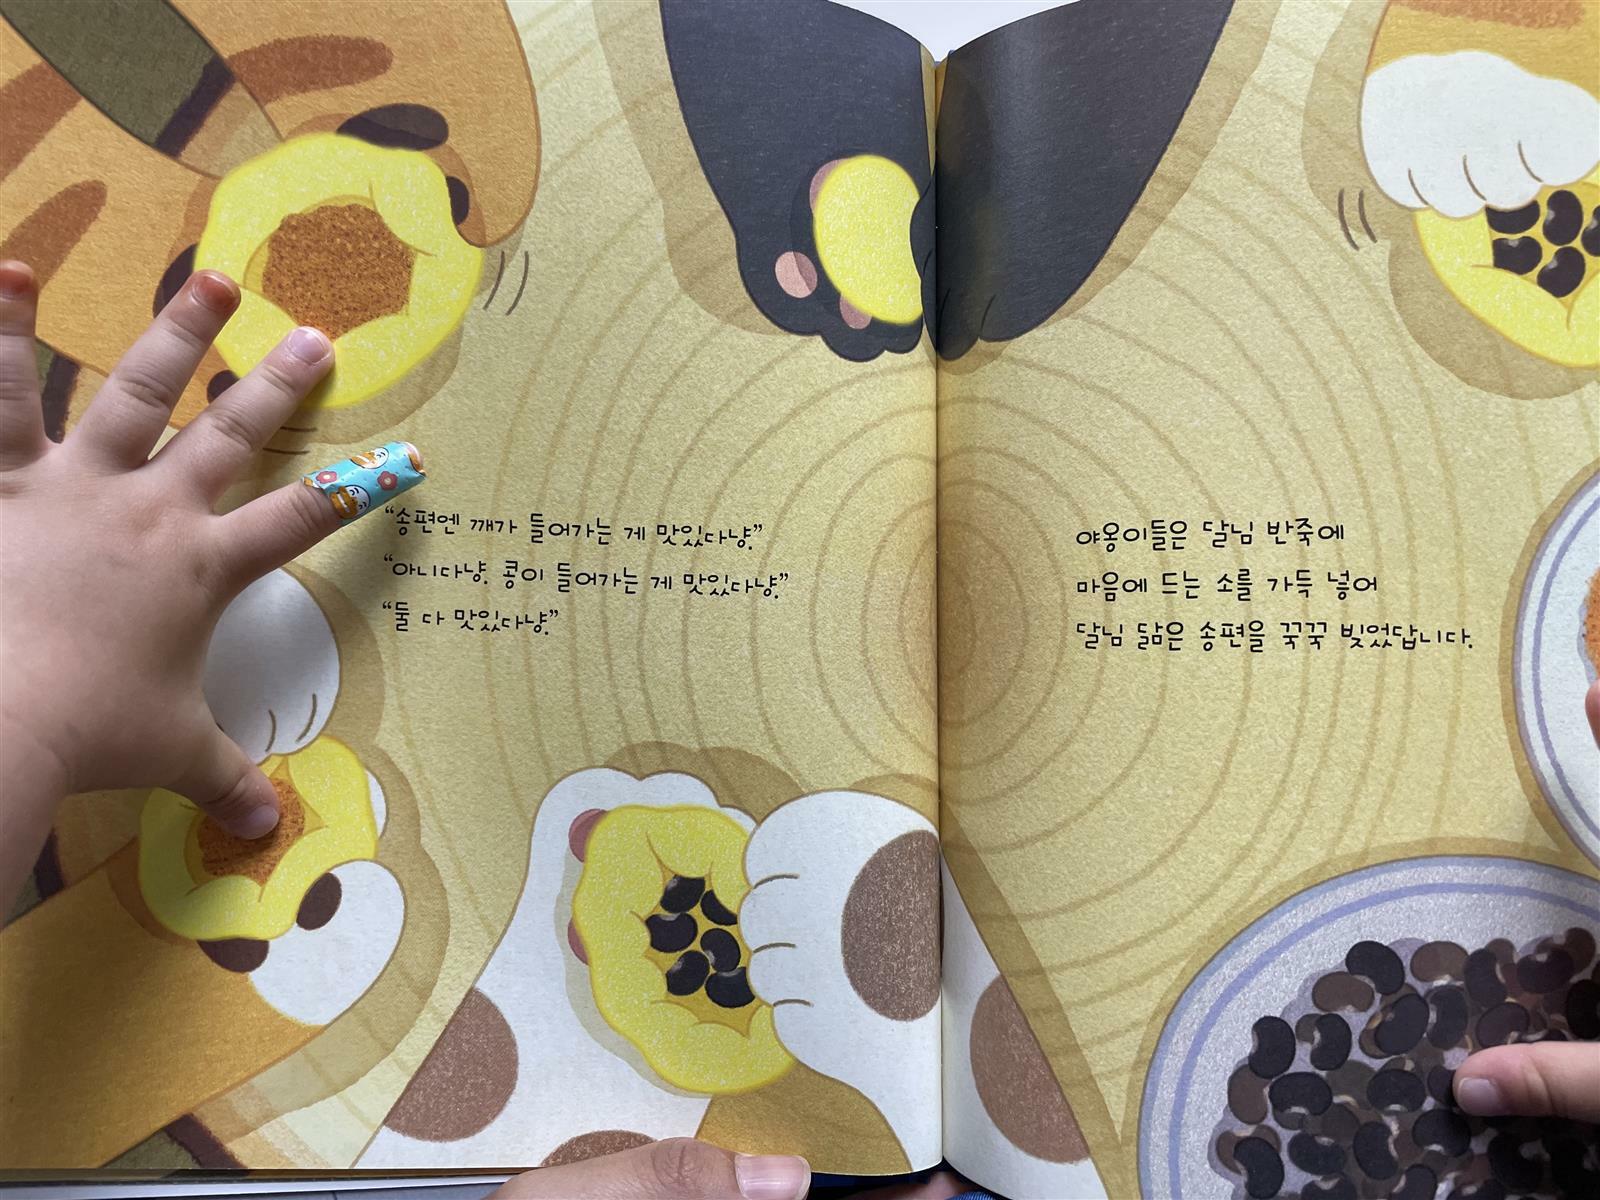 “송편엔 깨가 들어가는 게 맛있다냥.”
“아니다냥. 콩이 들어가는 게 맛있다냥.”
“둘 다 맛있다냥.”
야옹이들은 달님 반죽에
마음에 드는 소를 가득 넣어
달님 닮은 송편을 꾹꾹 빚었답니다.